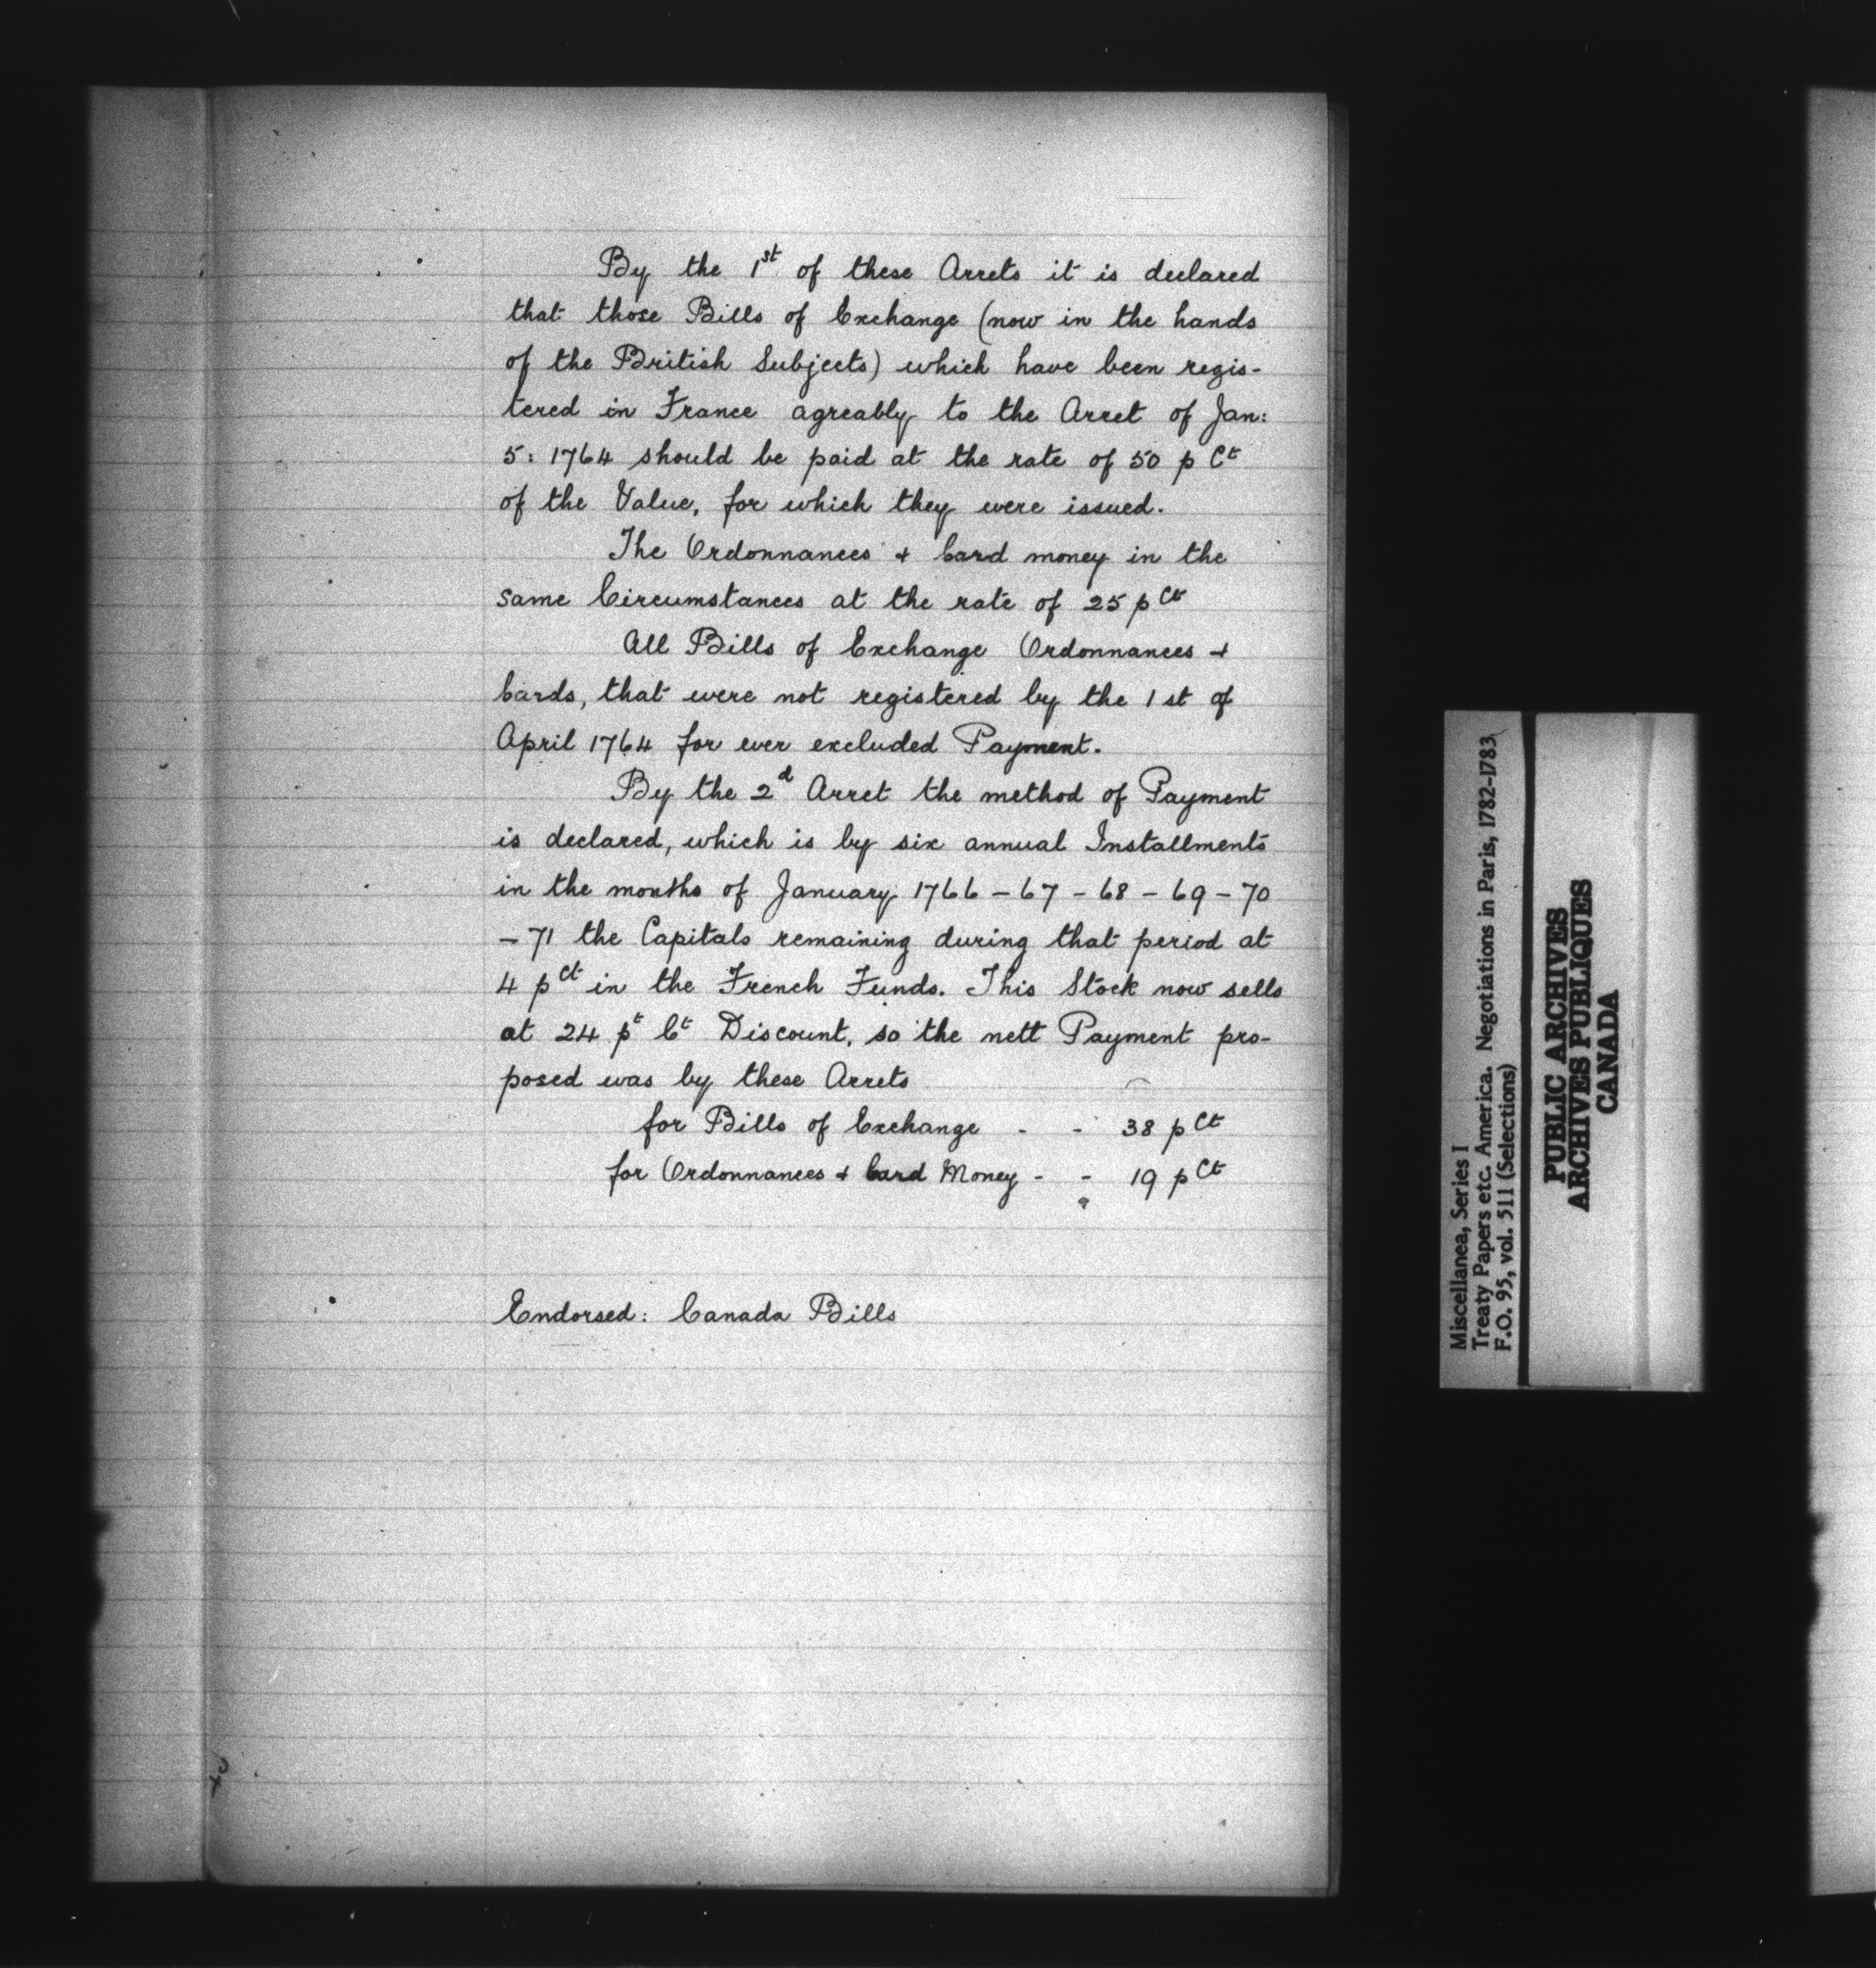 By the 1st of these Arrets it is declared
that those Bills of Exchange (now in the hands
of the British Subjects) which have been regis-
tered in France agreably to the Arret of Jan:
5: 1764 should be paid at the rate of 50 p Ct
of the Value, for which they were issued.
The Ordonnances & Card money in the
same Circumstances at the rate of 25 p Ct
All Bills of Exchange Ordonnances &
Cards, that were not registered by the 1st of
April 1764 for ever excluded Payment.
By the 2d Arret the method of Payment
is declared, which is by six annual Installments
in the months of January 1766 - 67 - 68 - 69 - 70
- 71 the Capitals remaining during that period at
4 p Ct in the French Funds. This Stock now sells
at 24 pt Ct Discount, so the nett Payment pro-
posed was by these Arrets
for Bills of Exchange - - 38 p Ct
for Ordonnances & Card Money - - 19 p Ct
Endorsed: Canada Bills
Miscellanea, Series I
Treaty Papers etc. America. Negotiations in Paris, 1782-1783
F.O. 95, vol. 511 (Selections)
PUBLIC ARCHIVES
ARCHIVES PUBLIQUES
CANADA